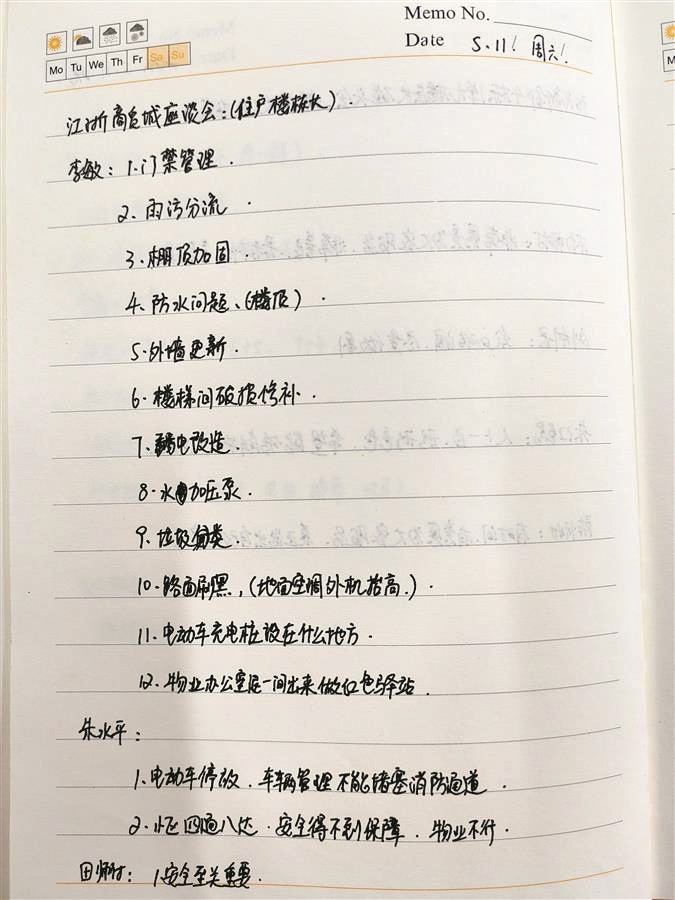 Memo No.
Date 5.11! 周六!
Mo Tu We Th Fr Sa Su
江浙商贸城座谈会:(住户楼栋长).
李敏: 1.门禁管理.
2.雨污分流.
3.棚顶加固.
4.防水问题、(楼顶).
5.外墙更新.
6.楼梯间破损修补.
7.弱电改造.
8.水加压泵.
9.垃圾分类.
10.路面刷黑,(地面空调外机抬高.).
11.电动车充电桩设在什么地方.
12.物业办公室腾一间出来做红色驿站.
朱水平:
1.电动车停放.车辆管理不能堵塞消防通道.
2.小区四通八达.安全得不到保障.物业不行.
田师付: 1.安全至关重要.
M